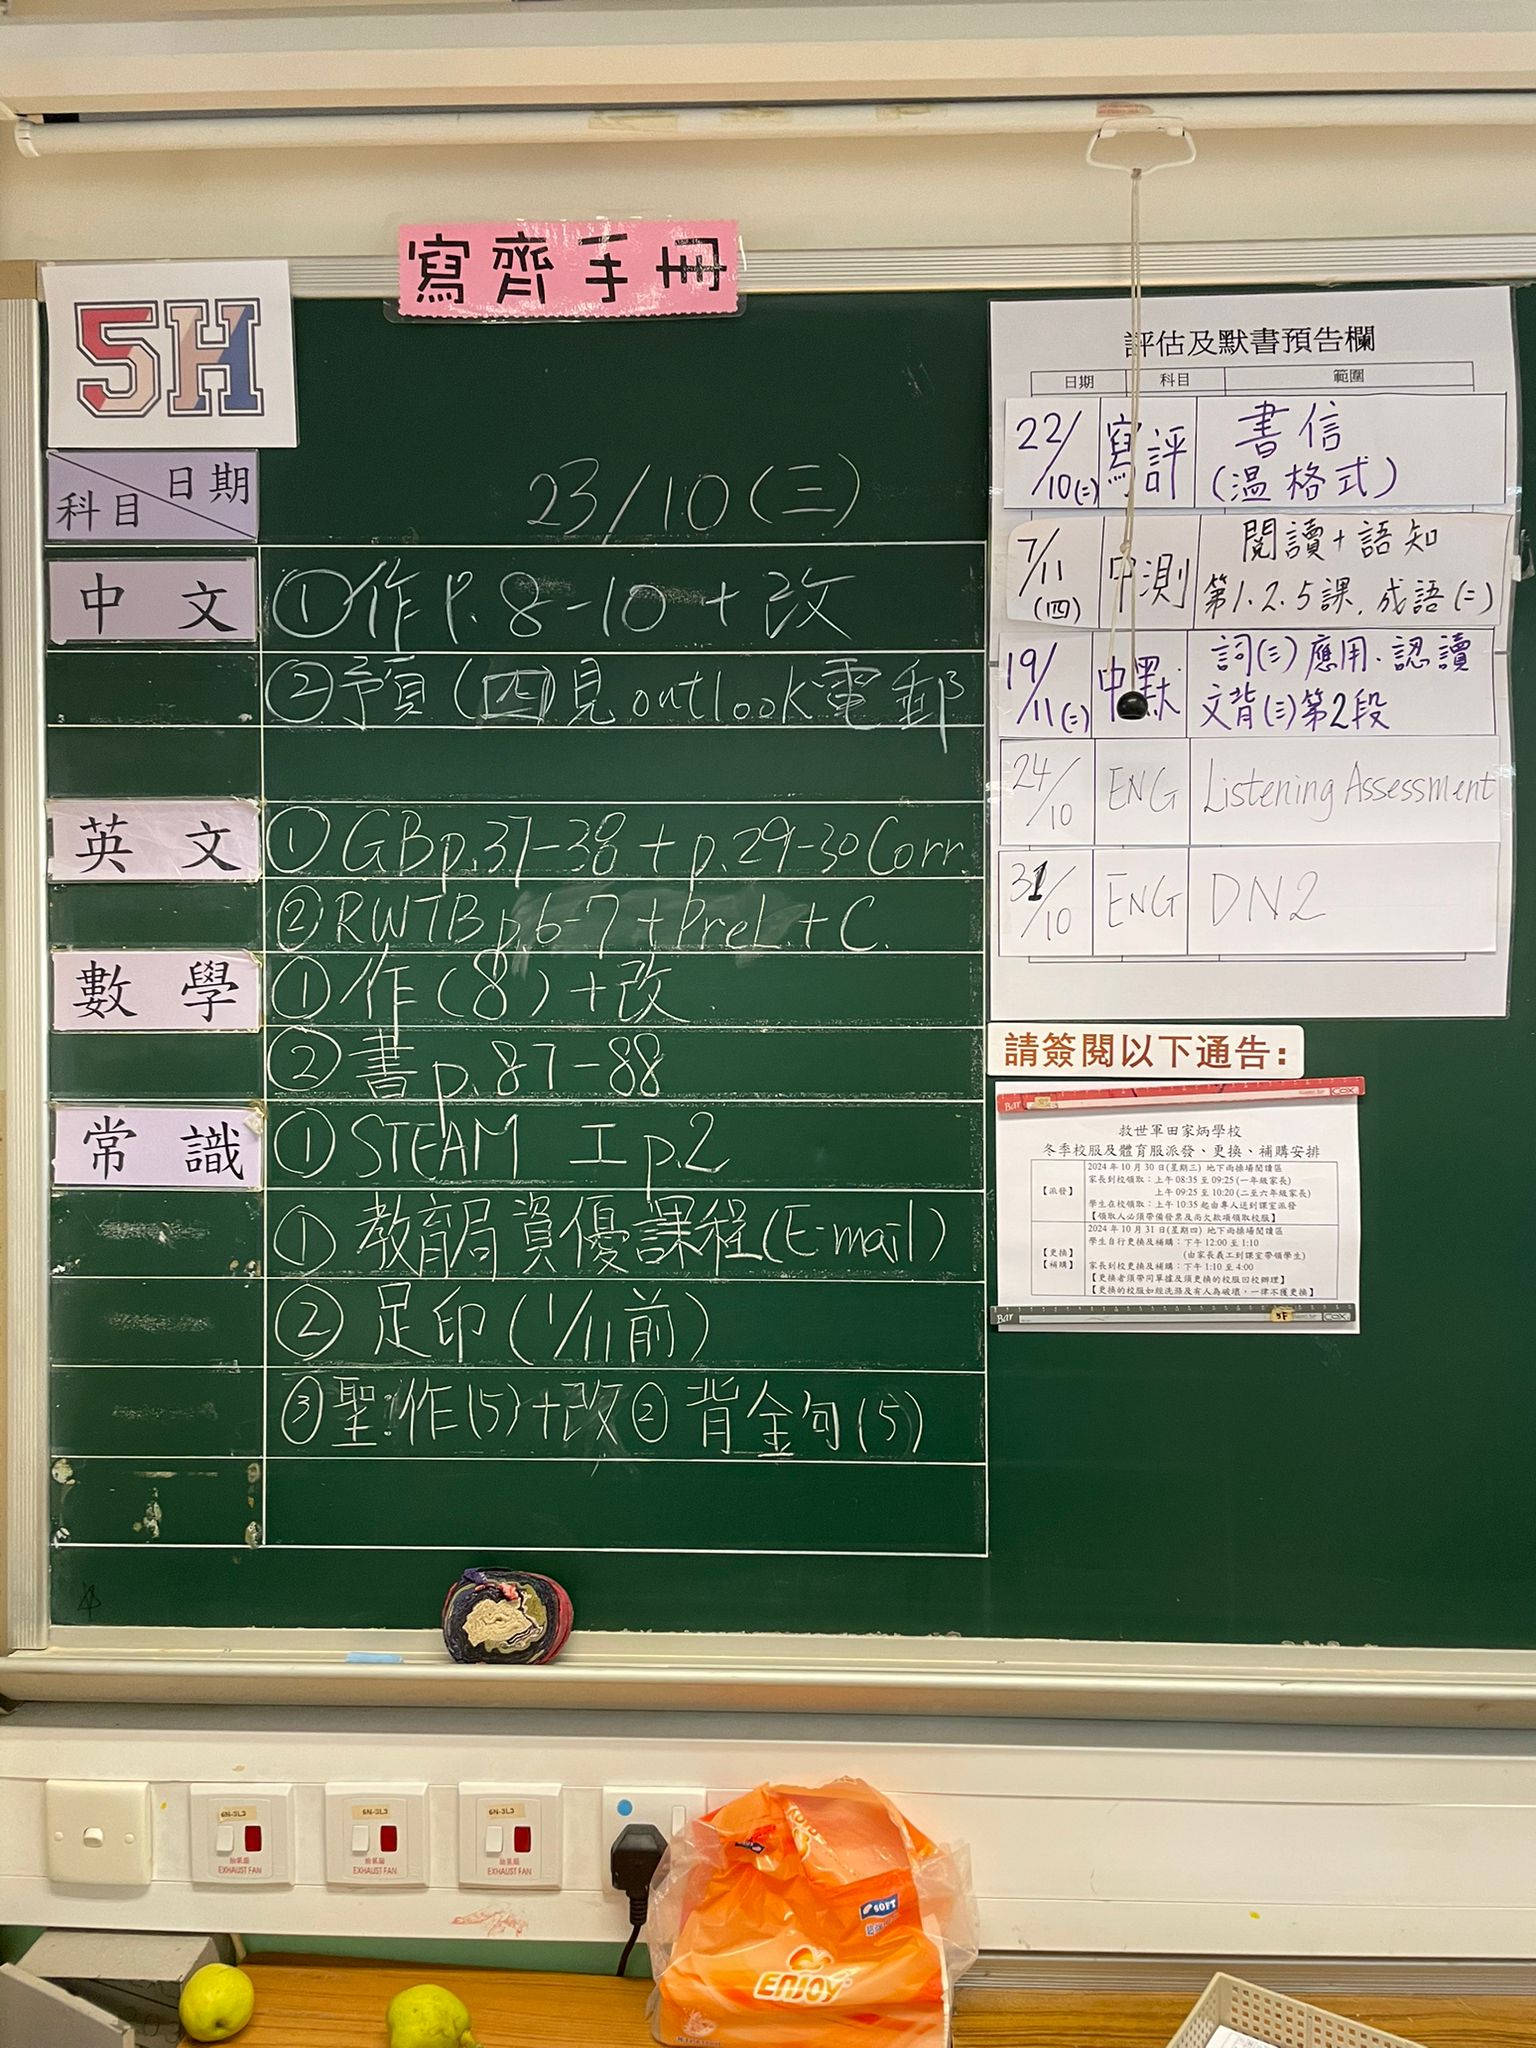 寫齊手冊
5H
日期
科目
23/10(三)
中文
①作P.8-10+改
②預(四)見outlook電郵
英文
①GBp.37-38+p.29-30 Corr
②RWTBp.6-7+PreL.+C.
數學
①作(8)+改.
②書p.87-88
常識
①STEAM 工p.2
①教育局資優課程(E-mail)
②足印(1/11前)
③聖:作(5)+改②背金句(5)
評估及默書預告欄
日期 科目 範圍
22/10(二) 寫評 書信(溫格式)
7/11(四) 中測 閱讀+語知
第1.2.5課.成語(二)
19/11(二) 中默 詞(三)應用.認讀
文背(三)第2段
24/10 ENG Listening Assessment
31/10 ENG DN2
請簽閱以下通告:
Bar COX
救世軍田家炳學校
冬季校服及體育服派發、更換、補購安排
【派發】
2024年10月30日(星期三)地下雨操場閱讀區
家長到校領取:上午08:35至09:25(一年級家長)
上午09:25至10:20(二至六年級家長)
學生在校領取:上午10:35起由專人送到課室派發
【領取人必須帶備發票及尚欠款項領取校服】
【更換】
【補購】
2024年10月31日(星期四)地下雨操場閱讀區
學生自行更換及補購:下午12:00至1:10
(由家長義工到課室帶領學生)
家長到校更換及補購:下午1:10至4:00
【更換者須帶同單據及須更換的校服回校辦理】
【更換的校服如經洗滌及有人為破壞,一律不獲更換】
Bar 5F COX
6N-3L3
抽氣扇
EXHAUST FAN
6N-3L3
抽氣扇
EXHAUST FAN
6N-3L3
抽氣扇
EXHAUST FAN
SOFT
ENJOY